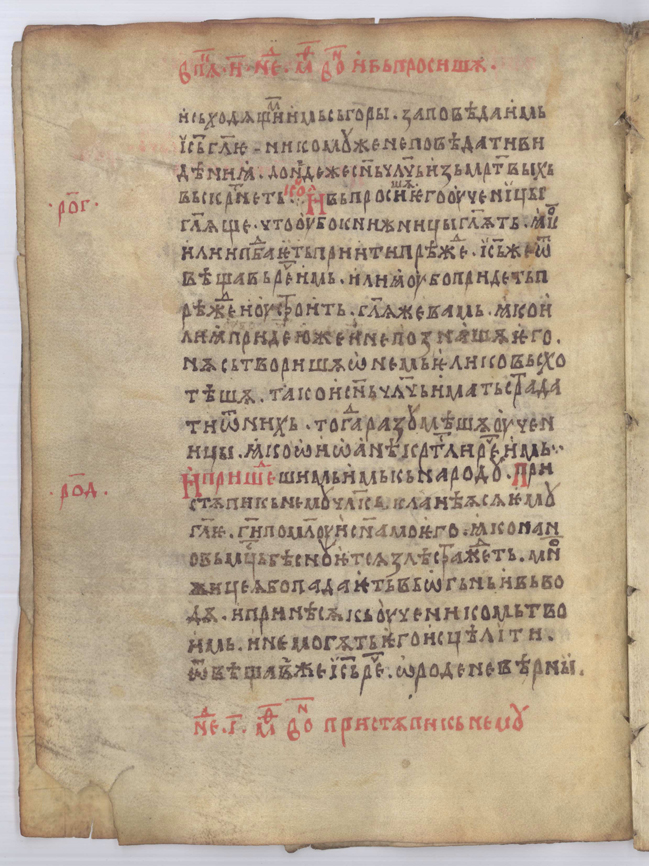 въ пⷮѧ · и҃ · нⷣе · мⷴ · воⷩ И въпросишѫ ·
исходѧщиⷨ имь съ горы . заповѣда имь
і҃съ гл҃ѥ · никомуже не повѣдати ви
дѣниꙗ · дондеже сн҃ъ чл҃чь изъ мрт҃выхъ
въскрⷭнеть · И въпросишѫ ѥго оученици
· рѻ҃г ·
гл҃ѧще . что оубо книжници гл҃ѫть . ꙗⷦ
илии пⷣбаѥть приити прѣжⷣе . і҃съ же ѿ
вѣщавъ реⷱ имь . илиꙗ оубо придеть п
рѣжⷣе и оустроить . гл҃ѧ же вамь . ꙗко и
лиꙗ приде юже и не познашѧ ѥго .
нѫ сътворишѧ ѡ немь ѥлико въсхо
тѣшѧ . тако и сн҃ъ чл҃чь имать страда
ти ѿ нихъ . тогⷣа разумѣшѧ оучен
ици . ꙗко ѡ иѡанѣ крⷭтли реⷱ имь ·
И пришеⷣшимь имь къ народоу . При
· рѻ҃д ·
стѫпи къ немоу чл҃къ . кланѣѧсѧ ѥмоу
гл҃ѥ . ги҃ помлⷭоуи сн҃а моѥго . ꙗко на н
овь мⷭць бѣсноуѥтсѧ ѕлѣ стражⷣеть . мнⷪ
жицеѧ бо падаѥть въ ѡгнь и въ во
дѫ . и принесѧ къ оученикомь тво
имь . и не могѫть ѥго исцѣлити .
ѿвѣщавⷤже і҃съ реⷱ . ѡ роде невѣрны .
нⷣе · г҃ · мⷴ · воⷩ пристѫпи къ немоу